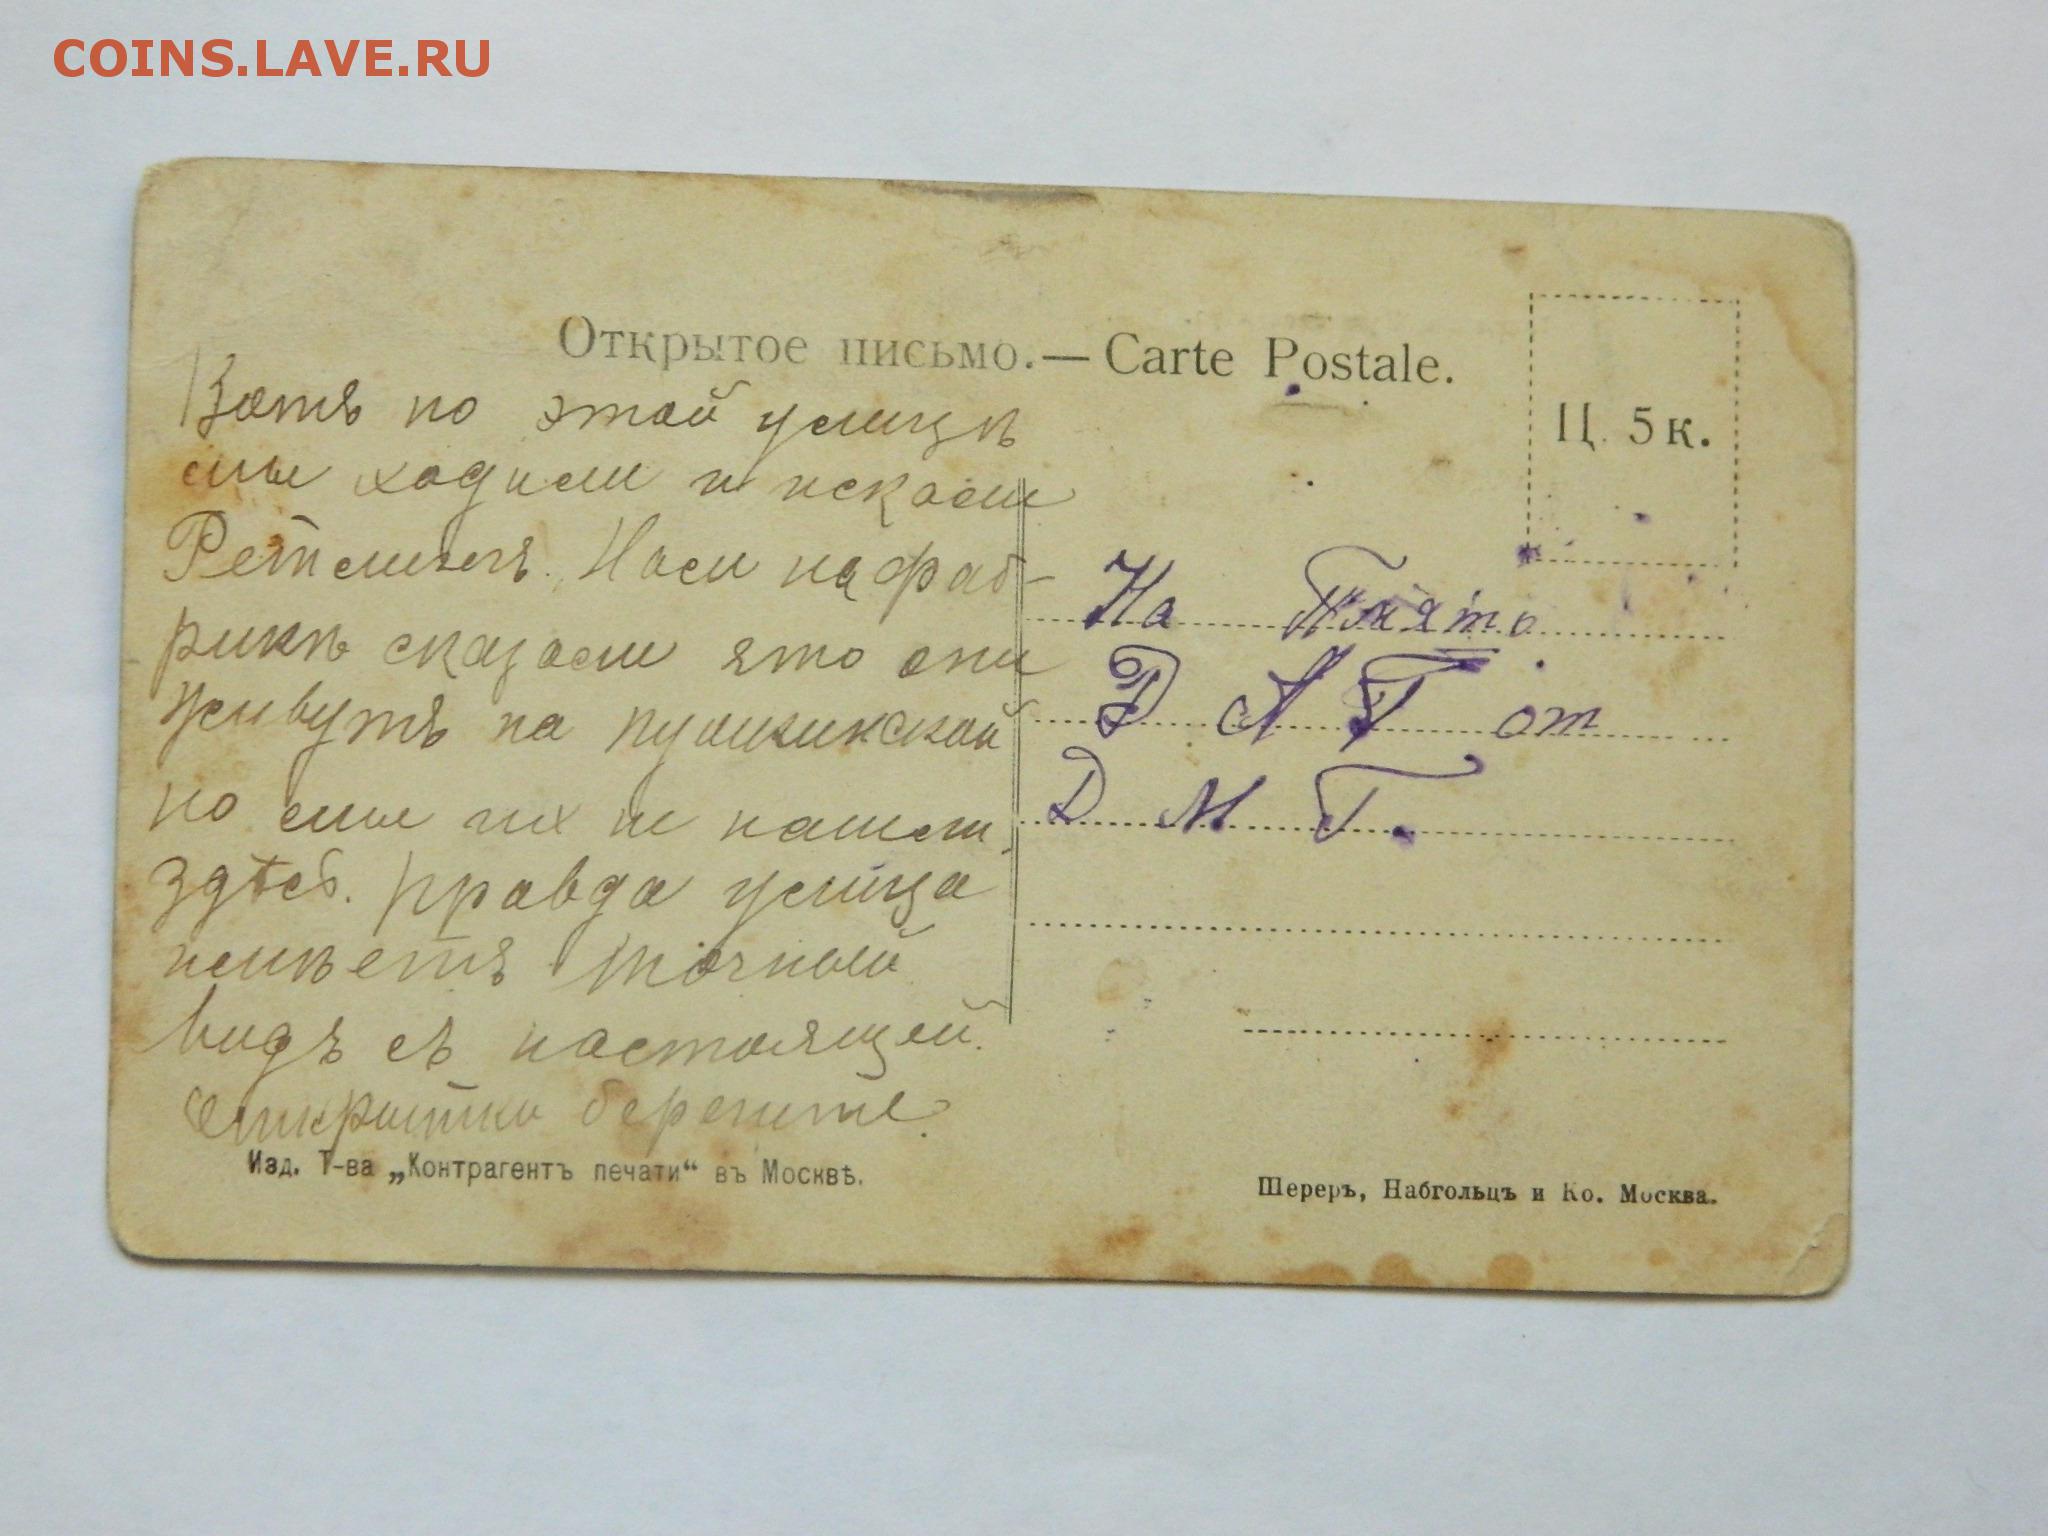 COINS.LAVE.RU
Открытое письмо. — Carte Postale.
Ц. 5 к.
Вотъ по этой улицѣ
мы ходили и искали
Намъ на фаб-
рикѣ сказали что они
живутъ на пушкинской
но мы их и нашли
здѣсь. правда улица
имѣетъ точный
видъ съ настоящей.
Открытки берегите.
На
Д А Г от
Д М Г.
Изд. Т-ва „Контрагентъ печати“ въ Москвѣ.
Шереръ, Набгольцъ и Ко. Москва.